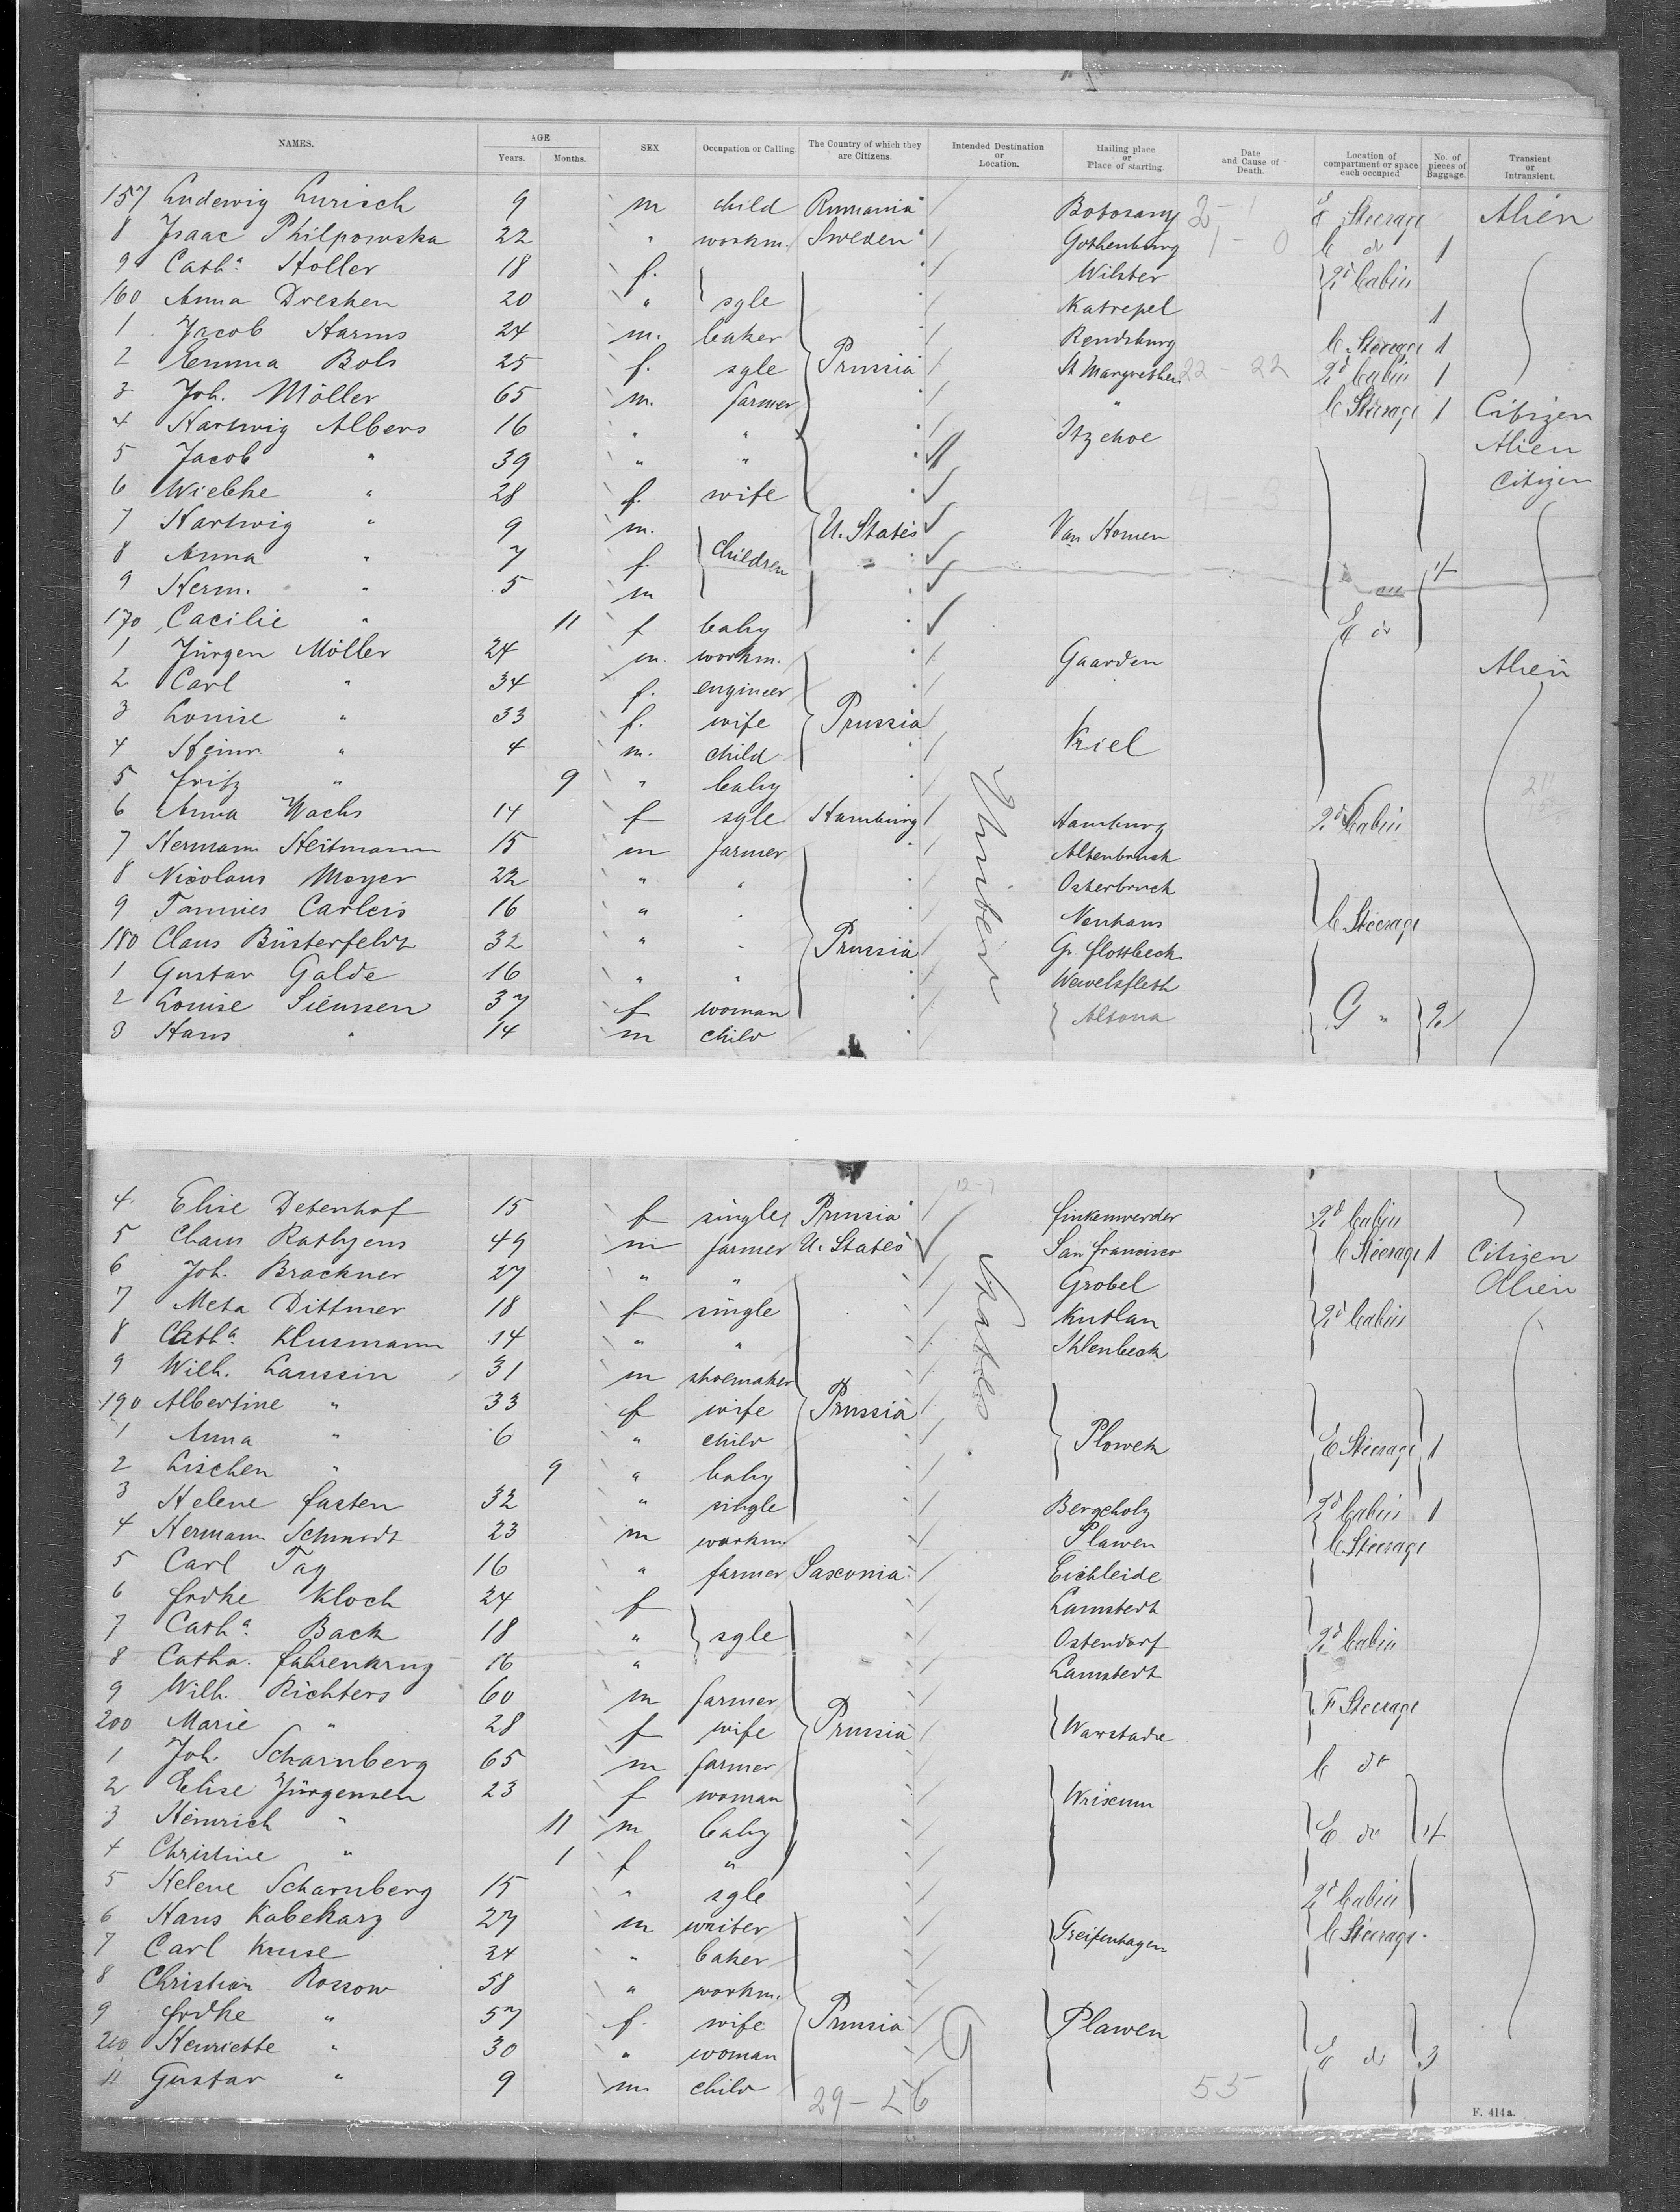 NAMES. AGE Years. Months. SEX Occupation or Calling. The Country of which they are Citizens. Intended Destination or Location. Hailing place or Place of starting. Date and Cause of Death. Location of compartment or space each occupied No. of pieces of Baggage. Transient or Intransient.
157 Ludewig Lurisch 9 m child Rumania Botosany E Steerage Alien
8 Isaac Philpowska 22 " workm. Sweden Gothenburg C do 1
9 Catha. Holler 18 f. Wilster 2d Cabin
160 Anna Dresken 20 " sgle Katrepel 1
1 Jacob Harms 24 m. baker Rendsburg C Steerage 1
2 Emma Bols 25 f. sgle Prussia St Margrethen 22 - 22 2d Cabin 1
3 Joh. Möller 65 m. farmer " C Steerage 1 Citizen
4 Hartwig Albers 16 " " Itzehoe Alien
5 Jacob " 39 " " Citizen
6 Wiebke " 28 f. wife
7 Hartwig " 9 m. U. States Van Homen
8 Anna " 7 f. children 4
9 Herm. " 5 m
170 Cacilie " 11 f baby E do
1 Jürgen Möller 24 m. workm. Gaarden Alien
2 Carl " 34 f. engineer
3 Louise " 33 f. wife Prussia
4 Heinr. " 4 m. child Kiel
5 Fritz " 9 " baby
6 Anna Wachs 14 f sgle Hamburg Hamburg 2d Cabin
7 Hermann Heitmann 15 m farmer Altenbruch
8 Nicolaus Meyer 22 " " Osterbruch
9 Tonnies Carlcis 16 " " Neuhaus C Steerage
180 Claus Büsterfeldt 32 " " Prussia Gr. Flottbeck
1 Gustav Galde 16 " " Wewelsfleth
2 Louise Siemssen 37 f woman Altona G " 2
3 Hans " 14 m child
United
4 Elise Detenhof 15 f single Prussia Finkenwerder 2d Cabin
5 Claus Rathjens 49 m farmer U. States San Francisco C Steerage 1 Citizen
6 Joh. Brackner 27 " " Grobel Alien
7 Meta Dittmer 18 f single Kutlau 2d Cabin
8 Catha Klusmann 14 " " Ihlenbeck
9 Wilh. Laussin 31 m shoemaker
190 Albertine " 33 f wife Prussia
1 Anna " 6 " child Plowek E Steerage 1
2 Lischen " 9 " baby
3 Helene Fasten 32 " single Bergholz 2d Cabin 1
4 Hermann Schmidt 23 m workm Plawen C Steerage
5 Carl Tag 16 " farmer Saxonia Eichleide
6 Frdke Kloch 24 f Lamstedt
7 Catha. Back 18 " sgle Ostendorf 2d Cabin
8 Catha. Fahrenkrug 16 " Lamstedt
9 Wilh. Richters 60 m farmer F Steerage
200 Marie " 28 f wife Prussia Warstade
1 Joh. Scharnberg 65 m farmer C do
2 Elise Jürgensen 23 f woman Wrixum
3 Heinrich " 11 m baby E do 4
4 Christine " 1 f "
5 Helene Scharnberg 15 " sgle 2d Cabin
6 Hans Kabekarz 27 m writer Greifenhagen C Steerage
7 Carl Kruse 24 " baker
8 Christian Rossow 58 " workm.
9 Frdke " 57 f. wife Prussia Plawen
210 Henriette " 30 " woman E do 3
11 Gustav " 9 m child
States
29 - 26 55
F. 414a.